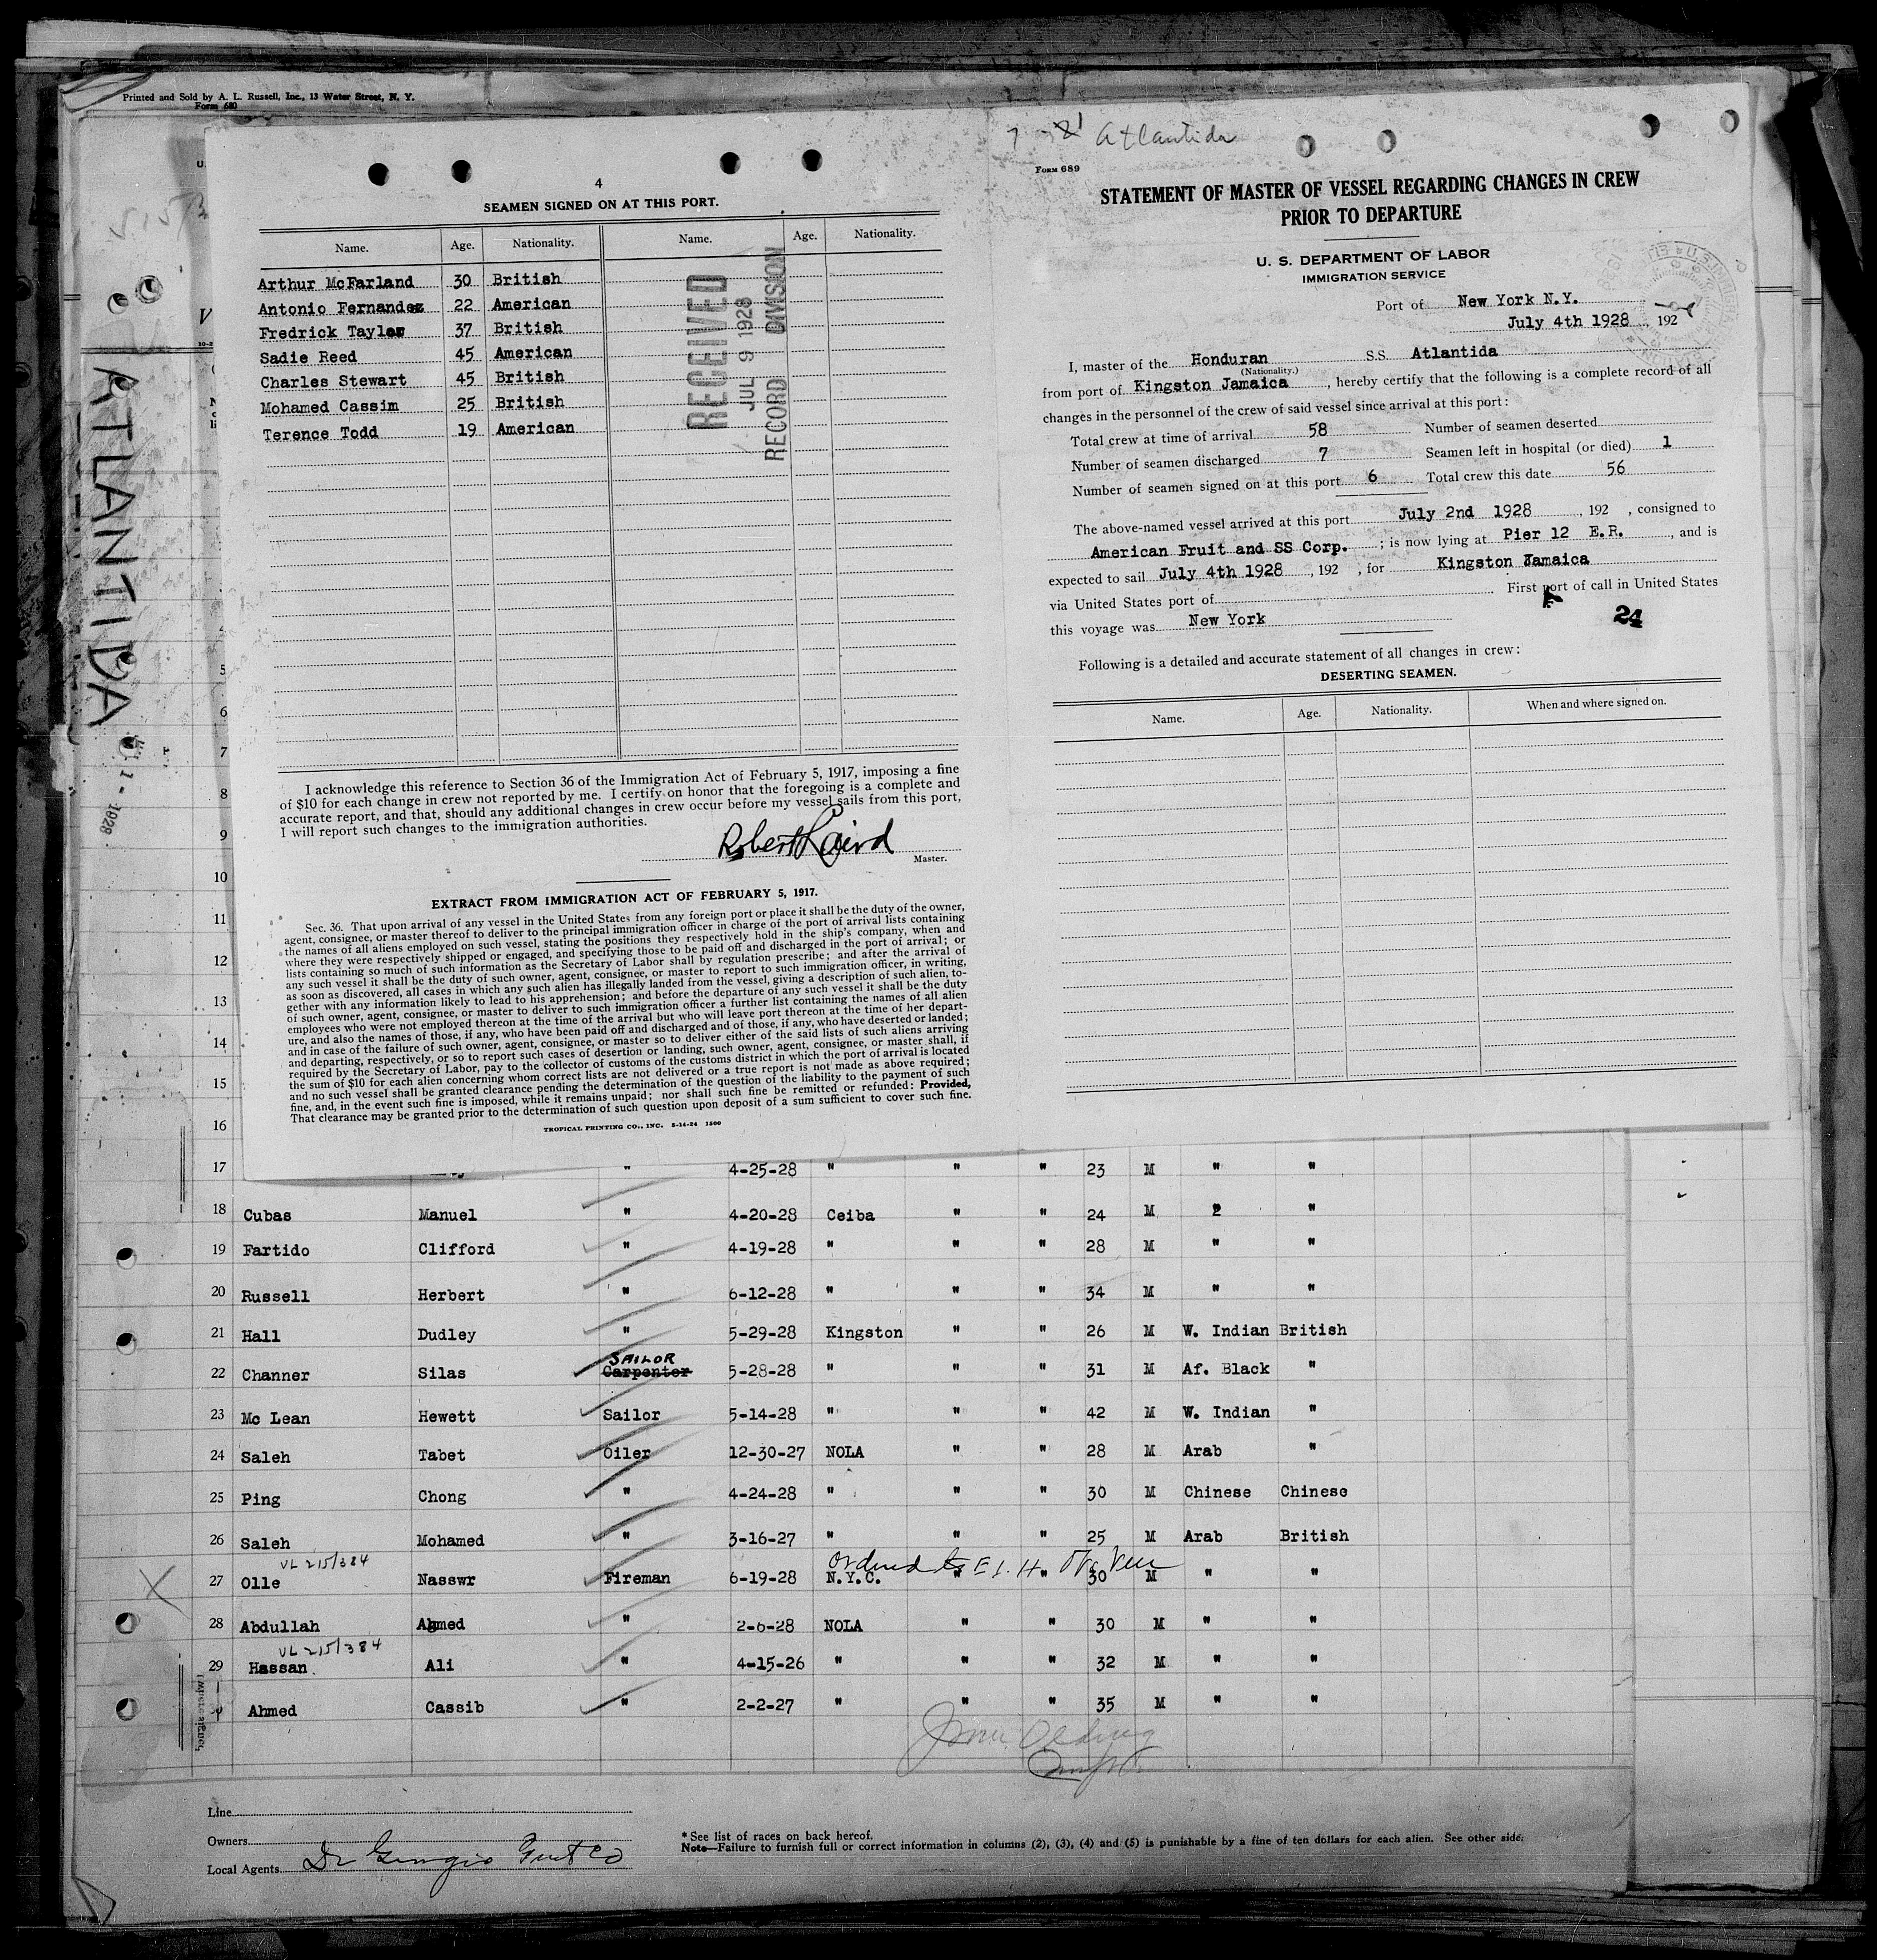 Printed and Sold by A. L. Russell, Inc., 13 Water Street, N. Y.
Form 680
ATLANTIDA
1 - 1928
4
SEAMEN SIGNED ON AT THIS PORT.
Name. Age. Nationality. Name. Age. Nationality.
Arthur McFarland 30 British
Antonio Fernandez 22 American
Fredrick Tayler 37 British
Sadie Reed 45 American
Charles Stewart 45 British
Mohamed Cassim 25 British
Terence Todd 19 American
RECEIVED
JUL 9 1928
RECORD DIVISION
I acknowledge this reference to Section 36 of the Immigration Act of February 5, 1917, imposing a fine
of $10 for each change in crew not reported by me. I certify on honor that the foregoing is a complete and
accurate report, and that, should any additional changes in crew occur before my vessel sails from this port,
I will report such changes to the immigration authorities.
Robert Laird
Master.
EXTRACT FROM IMMIGRATION ACT OF FEBRUARY 5, 1917.
Sec. 36. That upon arrival of any vessel in the United States from any foreign port or place it shall be the duty of the owner,
agent, consignee, or master thereof to deliver to the principal immigration officer in charge of the port of arrival lists containing
the names of all aliens employed on such vessel, stating the positions they respectively hold in the ship's company, when and
where they were respectively shipped or engaged, and specifying those to be paid off and discharged in the port of arrival; or
lists containing so much of such information as the Secretary of Labor shall by regulation prescribe; and after the arrival of
any such vessel it shall be the duty of such owner, agent, consignee, or master to report to such immigration officer, in writing,
as soon as discovered, all cases in which any such alien has illegally landed from the vessel, giving a description of such alien, to-
gether with any information likely to lead to his apprehension; and before the departure of any such vessel it shall be the duty
of such owner, agent, consignee, or master to deliver to such immigration officer a further list containing the names of all alien
employees who were not employed thereon at the time of the arrival but who will leave port thereon at the time of her depart-
ure, and also the names of those, if any, who have been paid off and discharged and of those, if any, who have deserted or landed;
and in case of the failure of such owner, agent, consignee, or master so to deliver either of the said lists of such aliens arriving
and departing, respectively, or so to report such cases of desertion or landing, such owner, agent, consignee, or master shall, if
required by the Secretary of Labor, pay to the collector of customs of the customs district in which the port of arrival is located
the sum of $10 for each alien concerning whom correct lists are not delivered or a true report is not made as above required;
and no such vessel shall be granted clearance pending the determination of the question of the liability to the payment of such
fine, and, in the event such fine is imposed, while it remains unpaid; nor shall such fine be remitted or refunded: Provided,
That clearance may be granted prior to the determination of such question upon deposit of a sum sufficient to cover such fine.
TROPICAL PRINTING CO., INC. 5-14-24 1500
Atlantida
Form 689
STATEMENT OF MASTER OF VESSEL REGARDING CHANGES IN CREW
PRIOR TO DEPARTURE
U. S. DEPARTMENT OF LABOR
IMMIGRATION SERVICE
Port of New York N.Y.
July 4th 1928, 192
I, master of the Honduran S.S. Atlantida
(Nationality.)
from port of Kingston Jamaica, hereby certify that the following is a complete record of all
changes in the personnel of the crew of said vessel since arrival at this port:
Total crew at time of arrival 58 Number of seamen deserted
Number of seamen discharged 7 Seamen left in hospital (or died) 1
Number of seamen signed on at this port 6 Total crew this date 56
The above-named vessel arrived at this port July 2nd 1928, 192 , consigned to
American Fruit and SS Corp.; is now lying at Pier 12 E.R., and is
expected to sail July 4th 1928, 192 , for Kingston Jamaica
via United States port of First port of call in United States
this voyage was New York
24
Following is a detailed and accurate statement of all changes in crew:
DESERTING SEAMEN.
Name. Age. Nationality. When and where signed on.
5
6
7
8
9
10
11
12
13
14
15
16
17 " 4-25-28 " " " 23 M " "
18 Cubas Manuel " 4-20-28 Ceiba " " 24 M 2 "
19 Fartido Clifford " 4-19-28 " " " 28 M " "
20 Russell Herbert " 6-12-28 " " " 34 M " "
21 Hall Dudley " 5-29-28 Kingston " " 26 M W. Indian British
SAILOR
22 Channer Silas Carpenter 5-28-28 " " " 31 M Af. Black "
23 Mc Lean Hewett Sailor 5-14-28 " " " 42 M W. Indian "
24 Saleh Tabet Oiler 12-30-27 NOLA " " 28 M Arab "
25 Ping Chong " 4-24-28 " " " 30 M Chinese Chinese
26 Saleh Mohamed " 3-16-27 " " " 25 M Arab British
VL 215/384
27 Olle Nasswr Fireman 6-19-28 N.Y.C. " " 30 M " "
28 Abdullah Ahmed " 2-6-28 NOLA " " 30 M " "
VL 215/384
29 Hassan Ali " 4-15-26 " " " 32 M " "
Ahmed Cassib " 2-2-27 " " " 35 M " "
Line
Owners
Local Agents Di Giorgio Fruit Co
* See list of races on back hereof.
Note—Failure to furnish full or correct information in columns (2), (3), (4) and (5) is punishable by a fine of ten dollars for each alien. See other side.